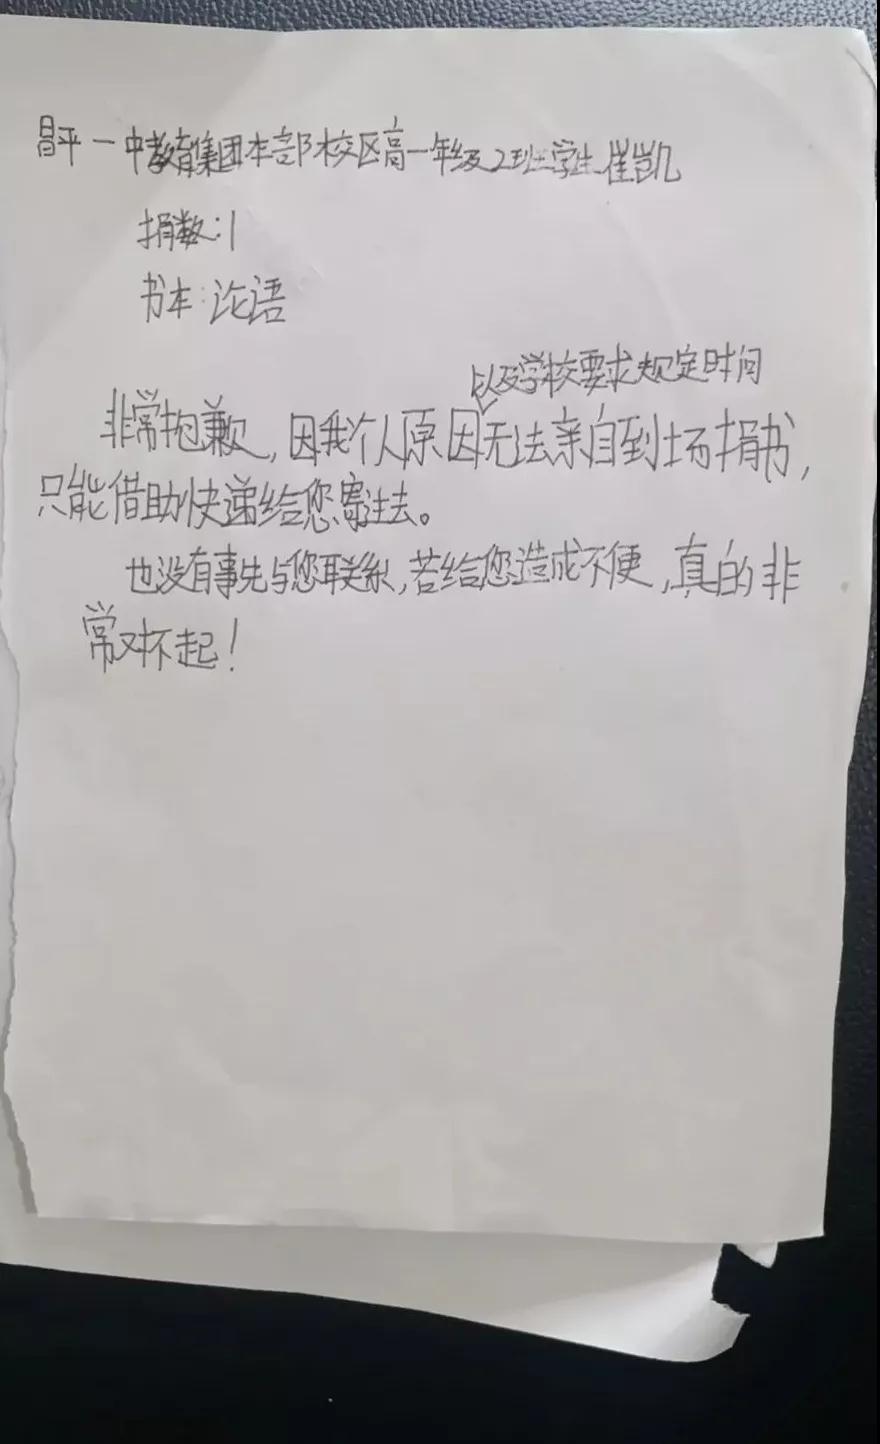 昌平一中教育集团本部校区高一年级2班学生崔凯
捐数:1
书本:论语
以及学校要求规定时间
非常抱歉,因我个人原因无法亲自到场捐书,
只能借助快递给您寄过去。
也没有事先与您联系,若给您造成不便,真的非
常对不起!